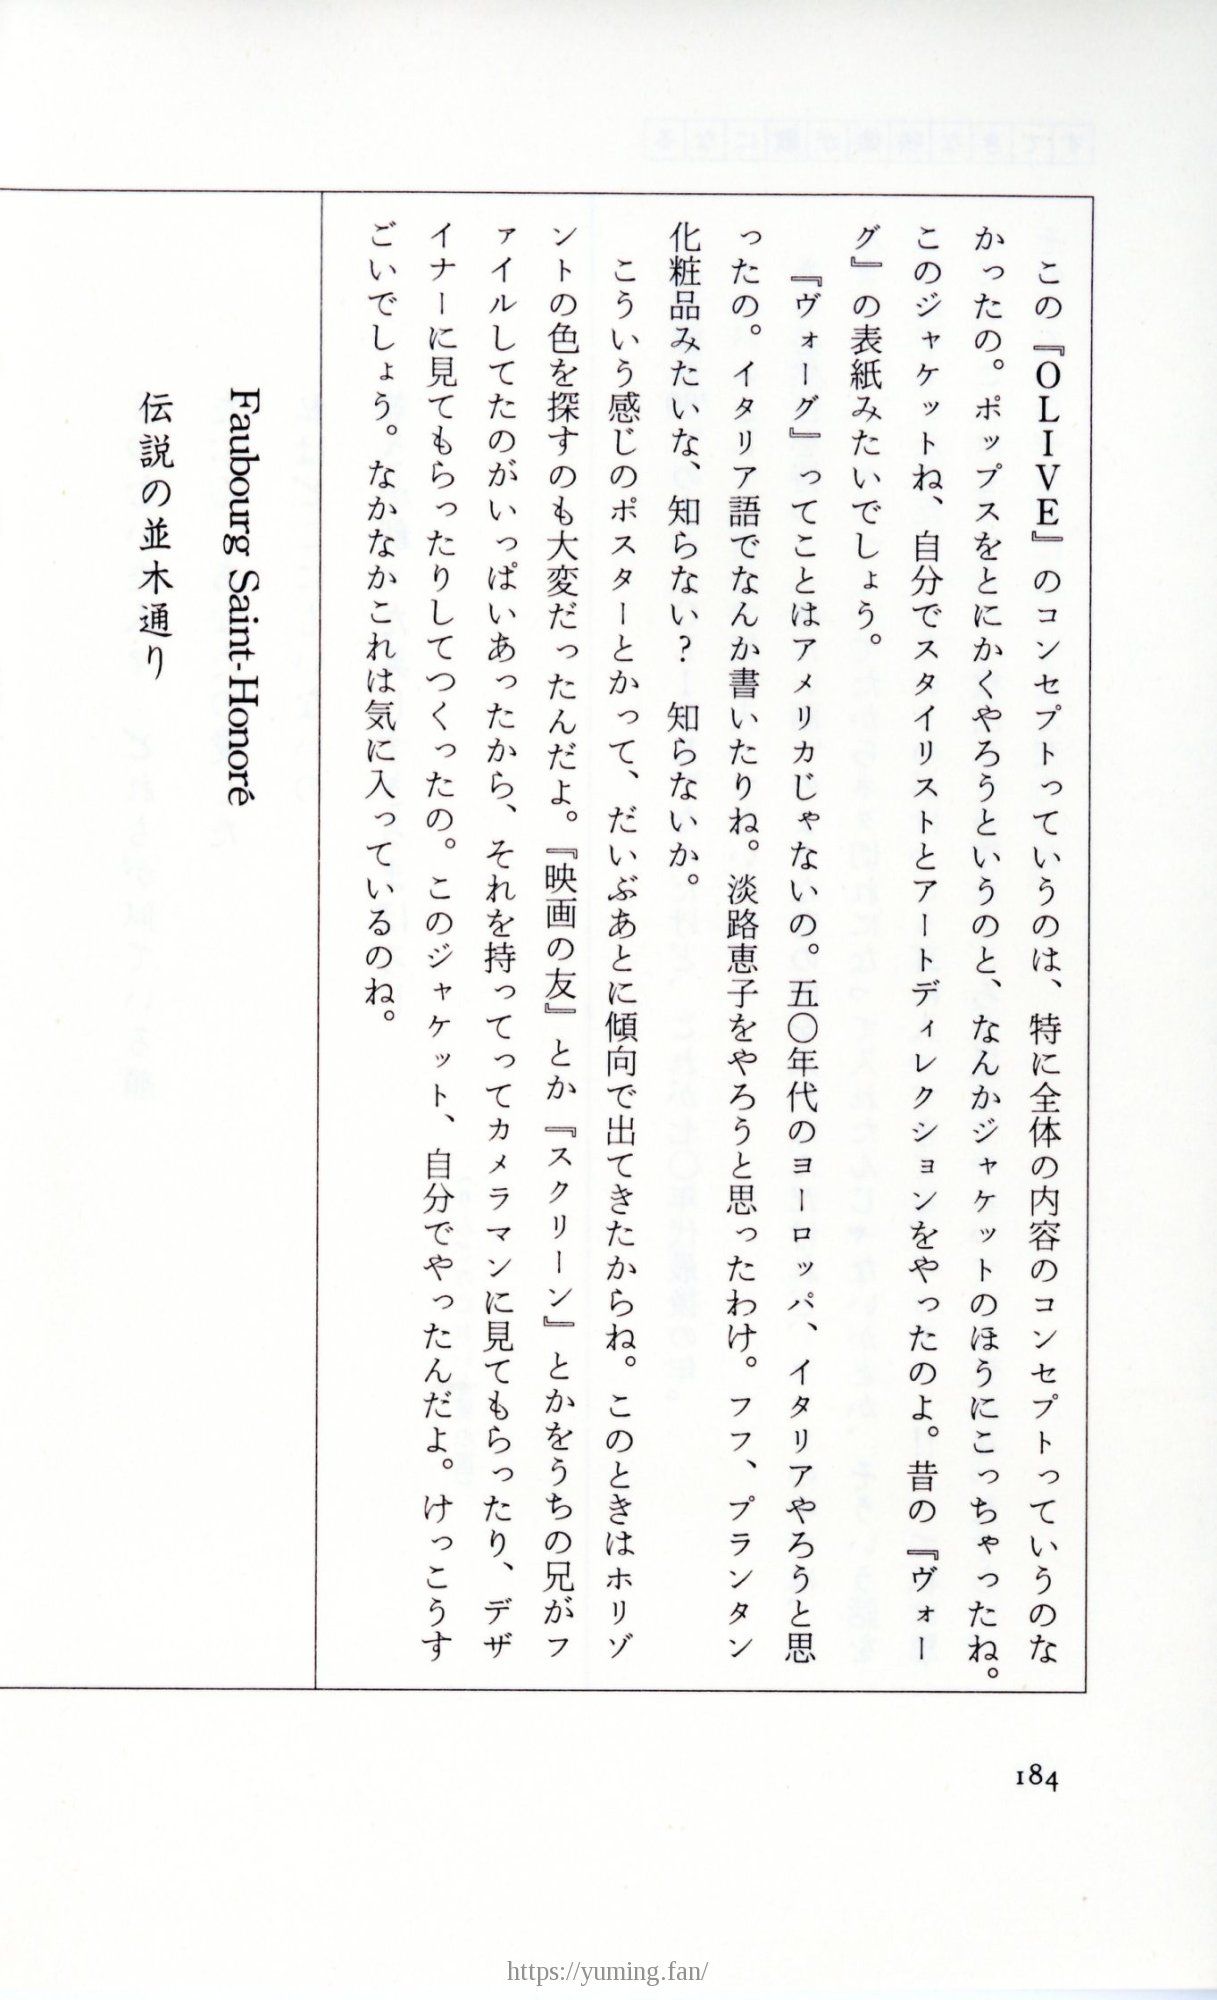 この『OLIVE』のコンセプトっていうのは、特に全体の内容のコンセプトっていうのな
かったの。ポップスをとにかくやろうというのと、なんかジャケットのほうにこっちゃったね。
このジャケットね、自分でスタイリストとアートディレクションをやったのよ。昔の『ヴォー
グ』の表紙みたいでしょう。
『ヴォーグ』ってことはアメリカじゃないの。五〇年代のヨーロッパ、イタリアやろうと思
ったの。イタリア語でなんか書いたりね。淡路恵子をやろうと思ったわけ。フフ、プランタン
化粧品みたいな、知らない? 知らないか。
こういう感じのポスターとかって、だいぶあとに傾向で出てきたからね。このときはホリゾ
ントの色を探すのも大変だったんだよ。『映画の友』とか『スクリーン』とかをうちの兄がフ
ァイルしてたのがいっぱいあったから、それを持ってってカメラマンに見てもらったり、デザ
イナーに見てもらったりしてつくったの。このジャケット、自分でやったんだよ。けっこうす
ごいでしょう。なかなかこれは気に入っているのね。
Faubourg Saint-Honoré
伝説の並木通り
184
https://yuming.fan/